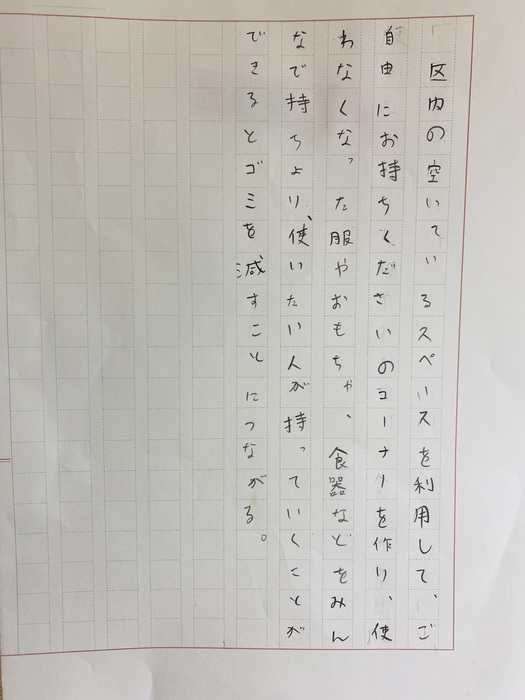 区内の空いているスペースを利用して、ご
自由にお持ちくださいのコーナーを作り、使
わなくなった服やおもちゃ、食器などをみん
なで持ちより、使いたい人が持っていくことが
できるとゴミを減すことにつながる。